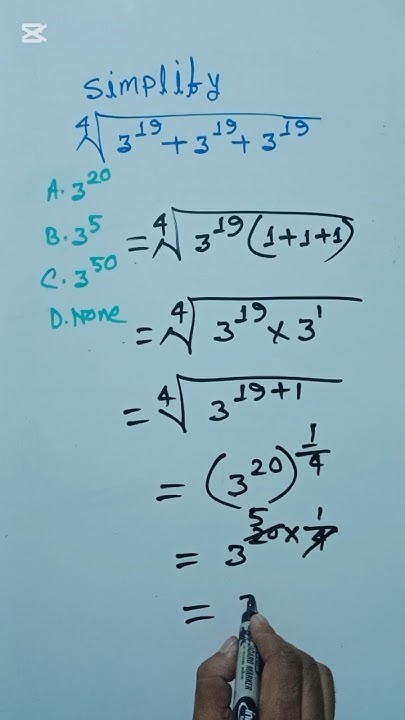 simplify
∜(3^19 + 3^19 + 3^19)
A. 3^20
B. 3^5
C. 3^50
D. None
= ∜(3^19 (1+1+1))
= ∜(3^19 × 3^1)
= ∜(3^(19+1))
= (3^20)^(1/4)
5
= 3^(20 × 1/4)
=